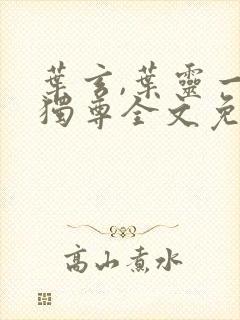 葉言,葉靈一
獨尊全文免
高山煮水